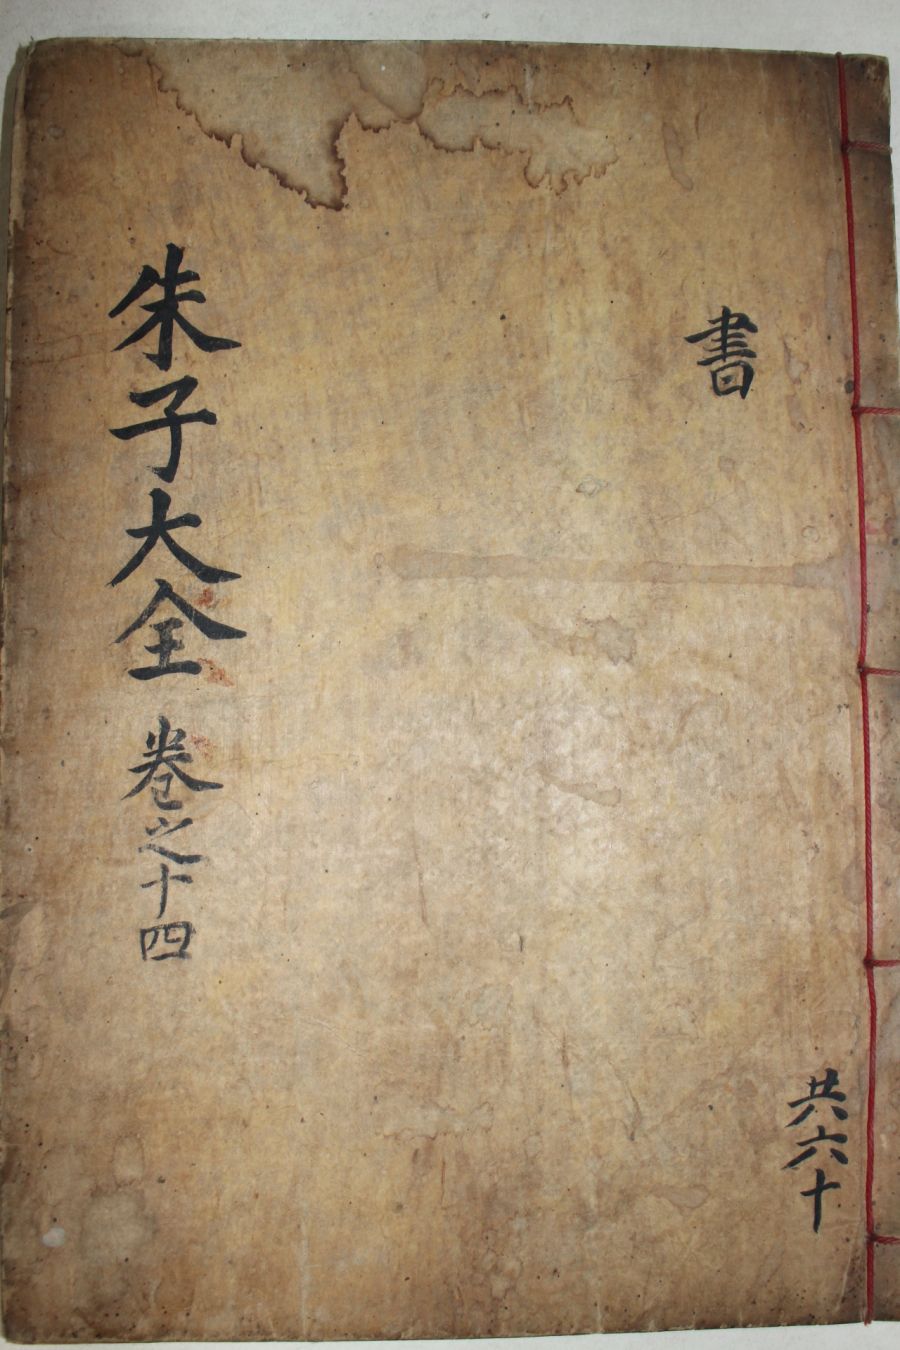 書
共六十
朱子大全 卷之十四